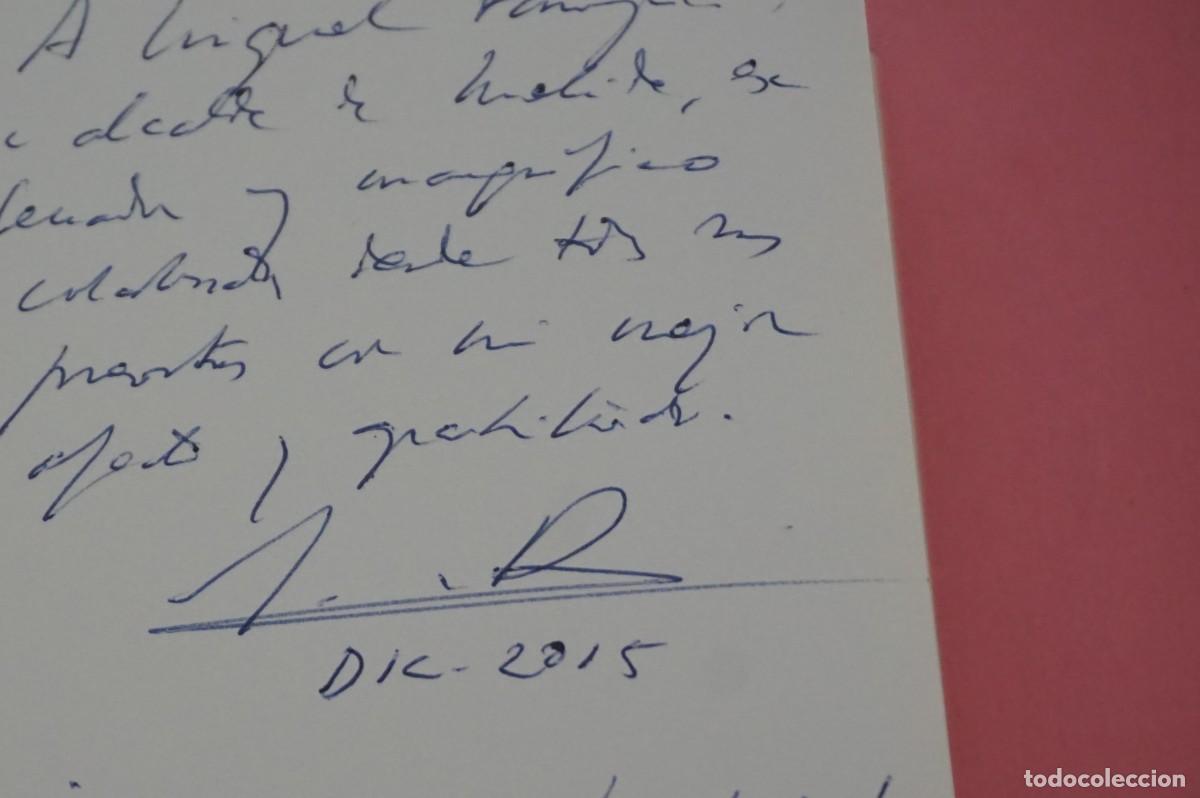 A Miguel
alcalde de Melide, ex
senador y magnífico
colaborador desde todos sus
puestos con mi mejor
afecto y gratitud.
DIC-2015
todocoleccion